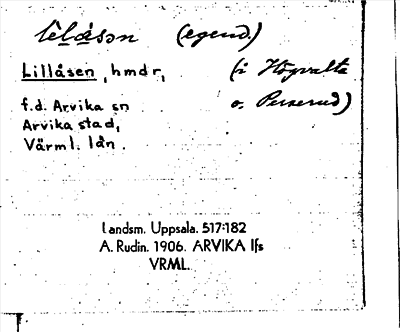 lìlå̀sən (egend.)
Lillåsen, hmdr, (i Högvalta
f.d. Arvika sn o. Perserud)
Arvika stad,
Värml. län.
Landsm. Uppsala. 517:182
A. Rudin. 1906. ARVIKA lfs
VRML.